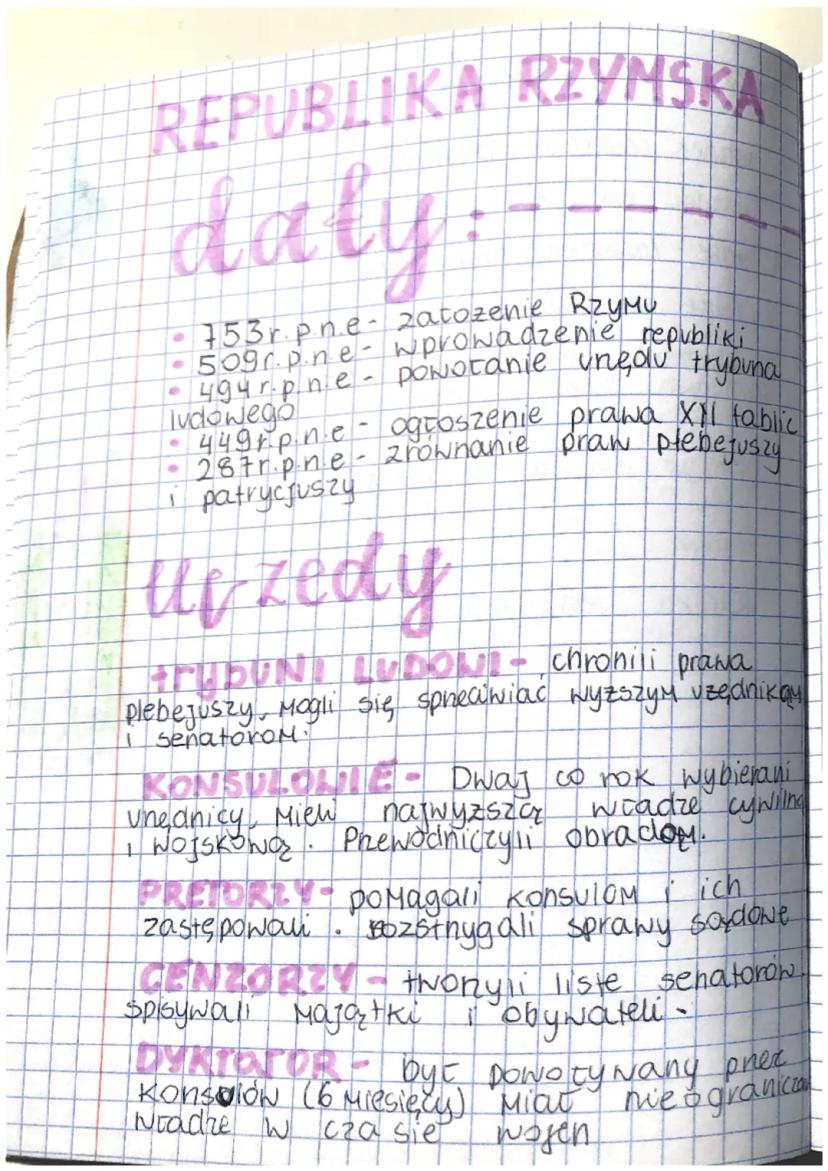 REPUBLIKA RZYMSKA
daty:------
• 753r.p.n.e - założenie Rzymu
• 509r.p.n.e - wprowadzenie republiki
• 494r.p.n.e - powołanie urzędu trybuna
ludowego
• 449r.p.n.e - ogłoszenie prawa XII tablic
• 287r.p.n.e - zrównanie praw plebejuszy
i patrycjuszy
urzedy
trybuni ludowi - chronili prawa
plebejuszy. Mogli się sprzeciwiać wyższym uzędnikom
i senatorom.
KONSULOWIE - Dwaj co rok wybierani
urzędnicy. Mieli najwyższą władzę cywilną
i wojskową. Przewodniczyli obradom.
PRETORZY - pomagali konsulom i ich
zastępowali. rozstrzygali sprawy sądowe
CENZORZY - tworzyli liste senatorów.
spisywali majątki i obywateli.
DYKTATOR - był powoływany przez
konsulów (6 miesięcy) miał nieograniczon
władze w czasie wojen